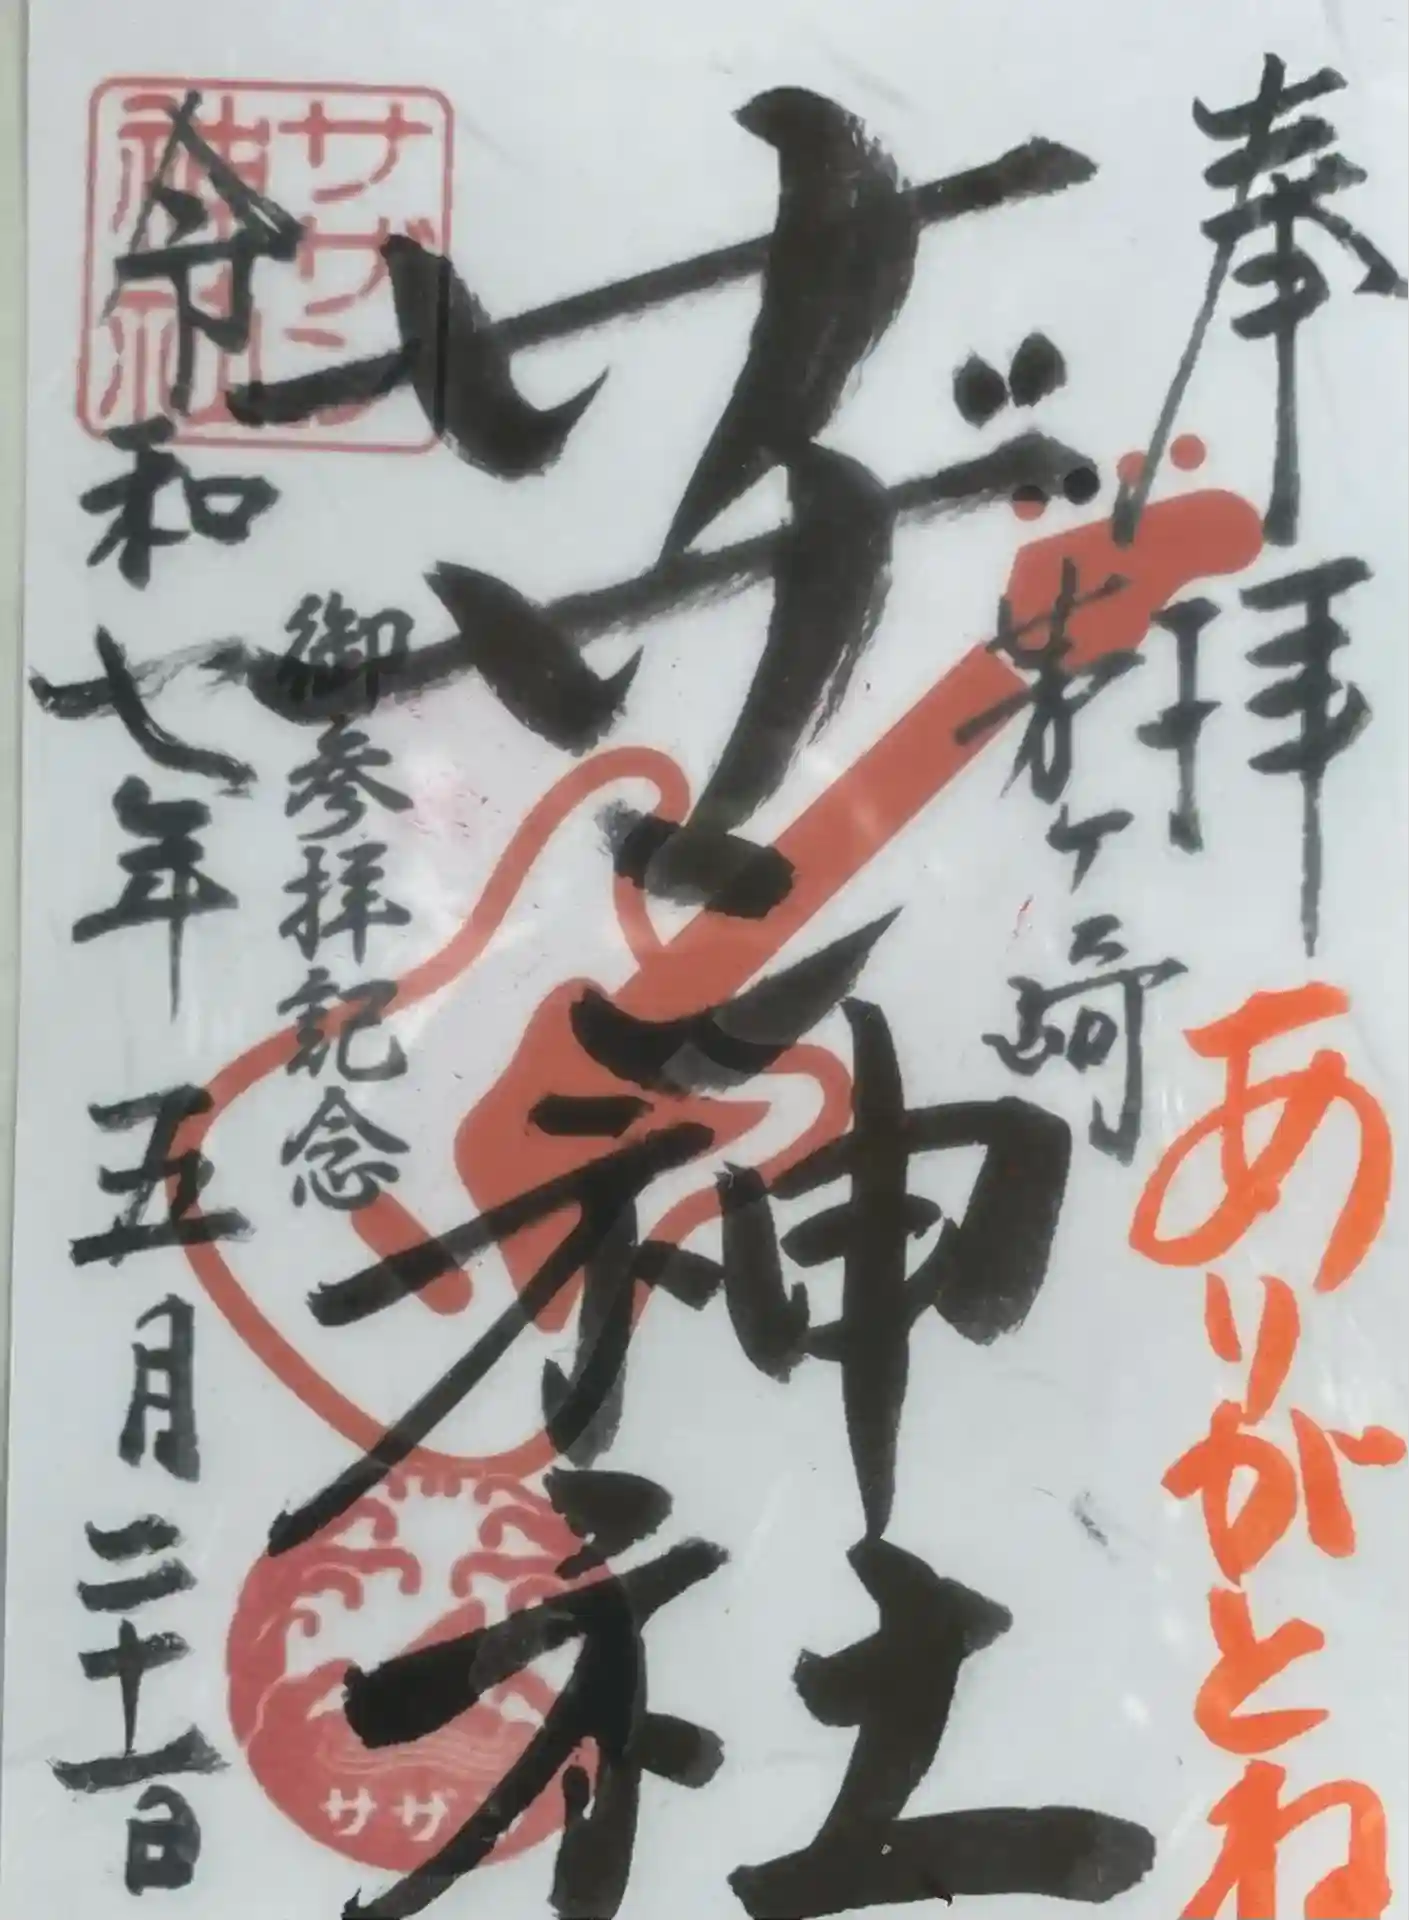 奉拝
ありがとね
茅ヶ崎
サザン神社
御参拝記念
サザン
神社
令和七年 五月 二十一日
サザ